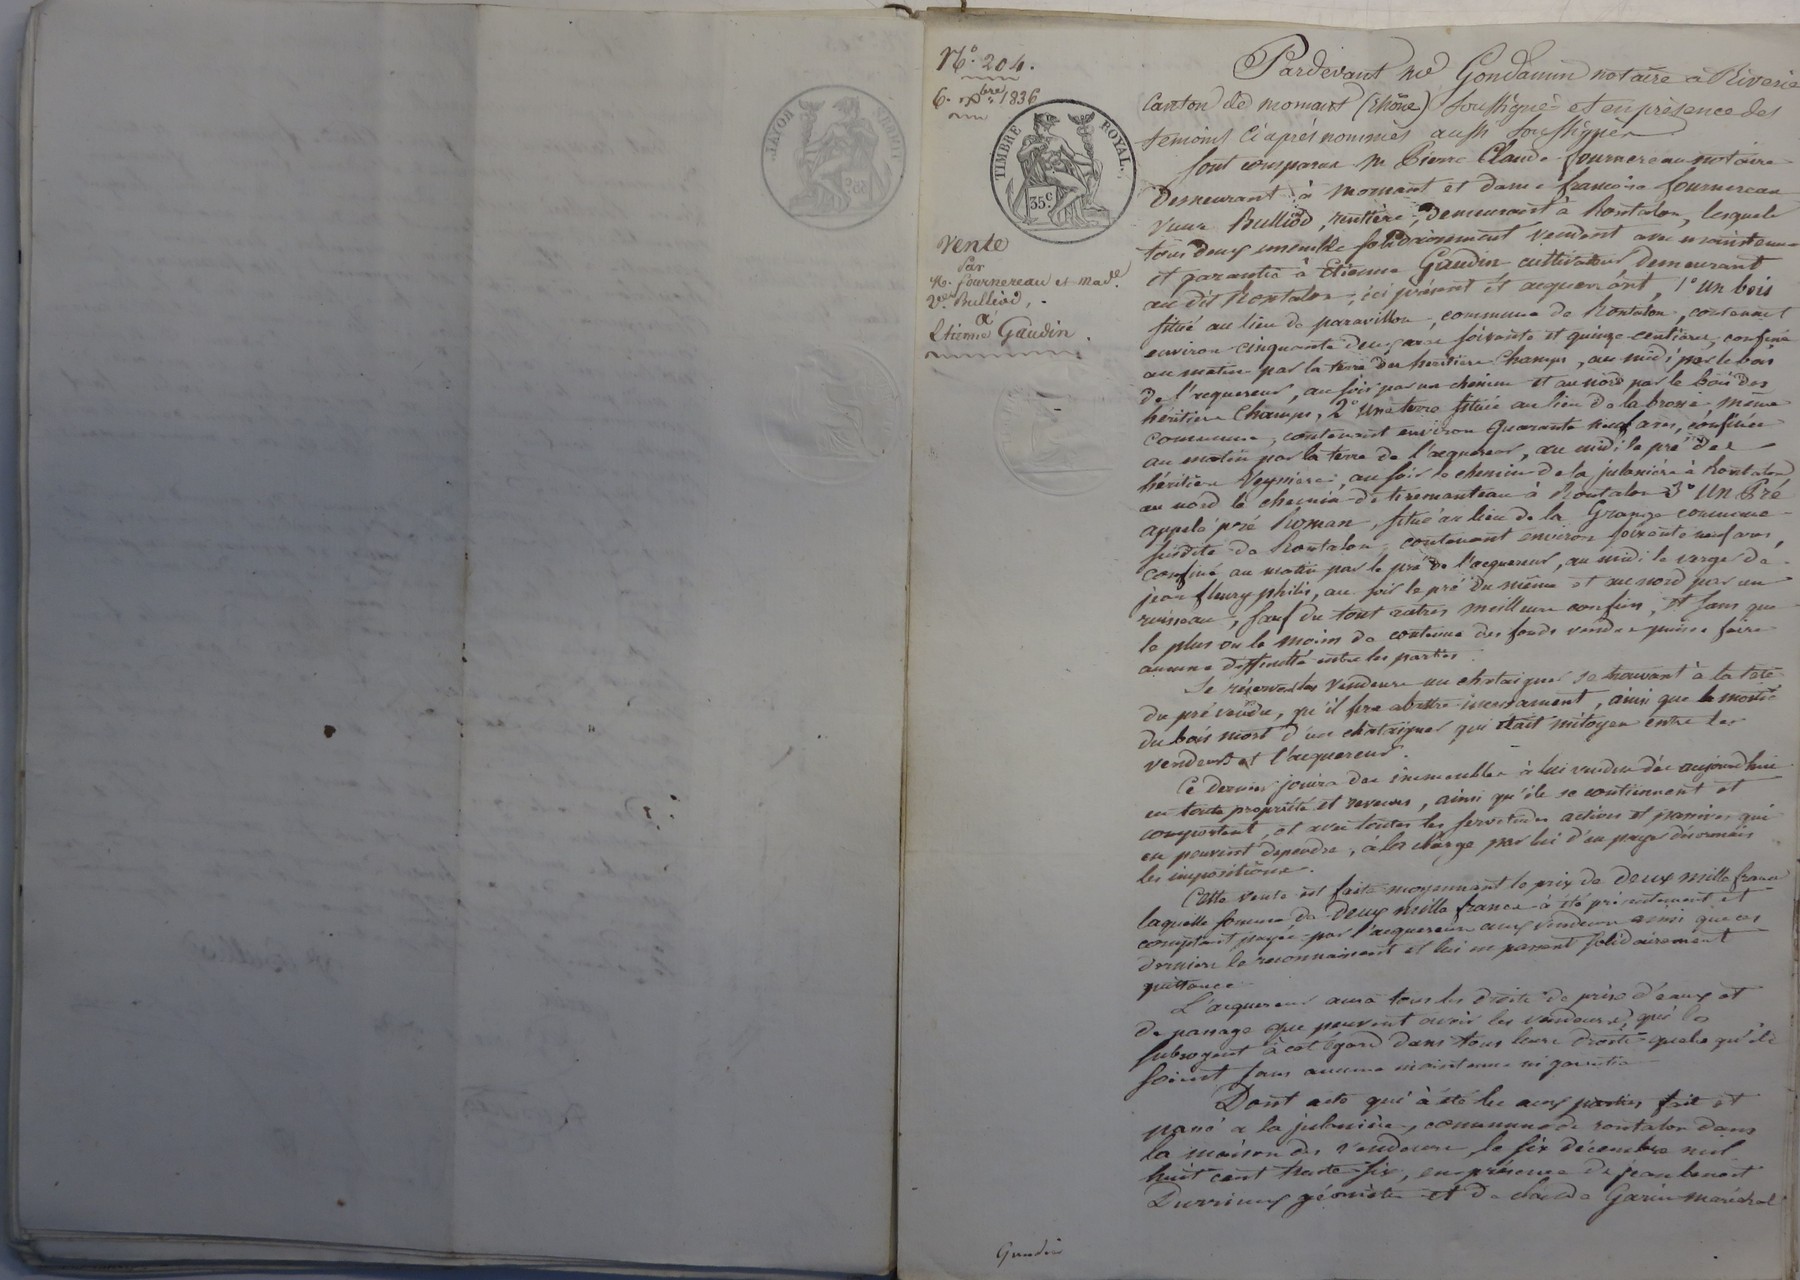 N.º 204.
6. Xbre 1836
TIMBRE ROYAL.
35c
Vente
par
M. fournereau et mad.e
V.ve Bulliod,
à
Etienne Gaudin.
Pardevant Me Gondamin notaire à Riverie
Canton de mornant (Rhône) soussigné et en présence des
temoins ci après nommés aussi soussignés
Sont comparus Me Pierre Claude fournereau notaire
Demeurant à mornant et dame françoise fournereau
veuve Bulliod, rentière, demeurant à Rontalon, lesquels
tous deux ensemble solidairement vendent avec maintenue
et garantie à Etienne Gaudin cultivateur, demeurant
au dit Rontalon, ici présent et acquerant, 1º un bois
situé au lieu de paravillon, commune de Rontalon, contenant
environ cinquante deux ares soixante et quinze centiares, confiné
au matin par la terre des heritiers Champs, au midi par le bois
de l'acquereur, au soir par un chemin et au nord par le bois des
héritiers Champs, 2º une terre située au lieu de la brosse, même
commune, contenant environ quarante neuf ares, confinée
au matin par la terre de l'acquereur, au midi le pré des
héritiers, au soir le chemin de la julinière à Rontalon
au nord le chemin de tiremanteau à Rontalon 3º Un Pré
appelé pré Roman, situé au lieu de la Grange commune
susdite de Rontalon, contenant environ soixante neuf ares,
confiné au matin par le pré de l'acquereur, au midi le verger de
jean fleury philis, au soir le pré du même et au nord par un
ruisseau, sauf du tout autres meilleurs confins, et sans que
le plus ou le moins de contenue des fonds vendus puisse faire
aucune difficulté entre les parties.
Se réservent les vendeurs un chataigner se trouvant à la tete
du pré vendu, qu'il fera abattre incessament, ainsi que la moitié
du bois mort d'un chataigner qui était mitoyen entre les
vendeurs et l'acquereur.
Ce dernier jouira des immeubles à lui vendus dès aujourd'hui
en toute propriété et revenus, ainsi qu'ils se contiennent et
comportent, et avec toutes les servitudes actives et passives qui
en peuvent dependre, à la charge par lui d'en payer désormais
les impositions.
Cette vente est faite moyennant le prix de deux mille francs
laquelle somme de deux mille francs à été présentement et
comptant payée par l'acquereur aux vendeurs ainsi que ces
derniers le reconnaissent et lui en passent solidairement
quittance.
L'acquereur aura tous les droits de prise d'eaux et
de passage que peuvent avoir les vendeurs, qui le
subrogent à cet égard dans tous leurs droits quels qu'ils
soient sans aucune maintenue ni garantie
Dont acte qui à été lu aux parties fait et
passé a la julinière, commune de rontalon dans
la maison des vendeurs, le six décembre mil
huit cent trente six, en présence de jean benoit
géomètre et de claude Garin maréchal
Gaudin